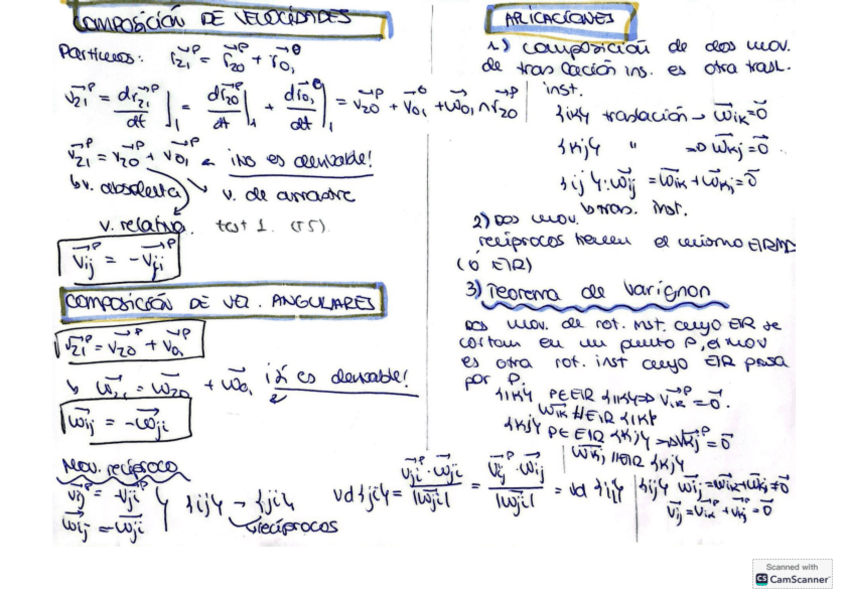 COMPOSICIÓN DE VELOCIDADES
Partimos: r₂₁ᴾ = r₂₀ᴾ + r₀₁⁰
v₂₁ᴾ = dr₂₁ᴾ/dt |₁ = dr₂₀ᴾ/dt |₁ + dr₀₁⁰/dt |₁ = v₂₀ᴾ + v₀₁⁰ + ω₀₁ ∧ r₂₀ᴾ
v₂₁ᴾ = v₂₀ᴾ + v₀₁ᴾ ¡No es derivable!
v. absoluta v. de arrastre
v. relativa. test 1. (T5)
vᵢⱼᴾ = -vⱼᵢᴾ
COMPOSICIÓN DE VEL. ANGULARES
v₂₁ᴾ = v₂₀ᴾ + v₀₁ᴾ
ω₂₁ = ω₂₀ + ω₀₁ ¡Sí es derivable!
ωᵢⱼ = -ωⱼᵢ
Mov. recíproco
vᵢⱼᴾ = -vⱼᵢᴾ
ωᵢⱼ = -ωⱼᵢ } {ij} → {ji}
recíprocos
vd {ji} = vⱼᵢᴾ · ωⱼᵢ / |ωⱼᵢ| = vᵢⱼᴾ · ωᵢⱼ / |ωᵢⱼ| = vd {ij}
APLICACIONES
1.) composición de dos mov.
de traslación ins. es otra trasl.
inst.
{ik} traslación → ωᵢₖ = 0
{kj} " ⇒ ωₖⱼ = 0
{ij}: ωᵢⱼ = ωᵢₖ + ωₖⱼ = 0
tras. inst.
2) Dos mov.
recíprocos tienen el mismo EIRMD
(ó EIR)
3) Teorema de Varignon
Dos mov. de rot. inst. cuyo EIR se
cortan en un punto P, el mov
es otra rot. inst cuyo EIR pasa
por P.
{ik} P∈EIR {ik} ⇒ vᵢₖᴾ = 0
ωᵢₖ // EIR {ik}
{kj} P∈EIR {kj} ⇒ vₖⱼᴾ = 0
ωₖⱼ // EIR {kj}
{ij} ωᵢⱼ = ωᵢₖ + ωₖⱼ ≠ 0
vᵢⱼᴾ = vᵢₖᴾ + vₖⱼᴾ = 0
Scanned with
CS CamScanner